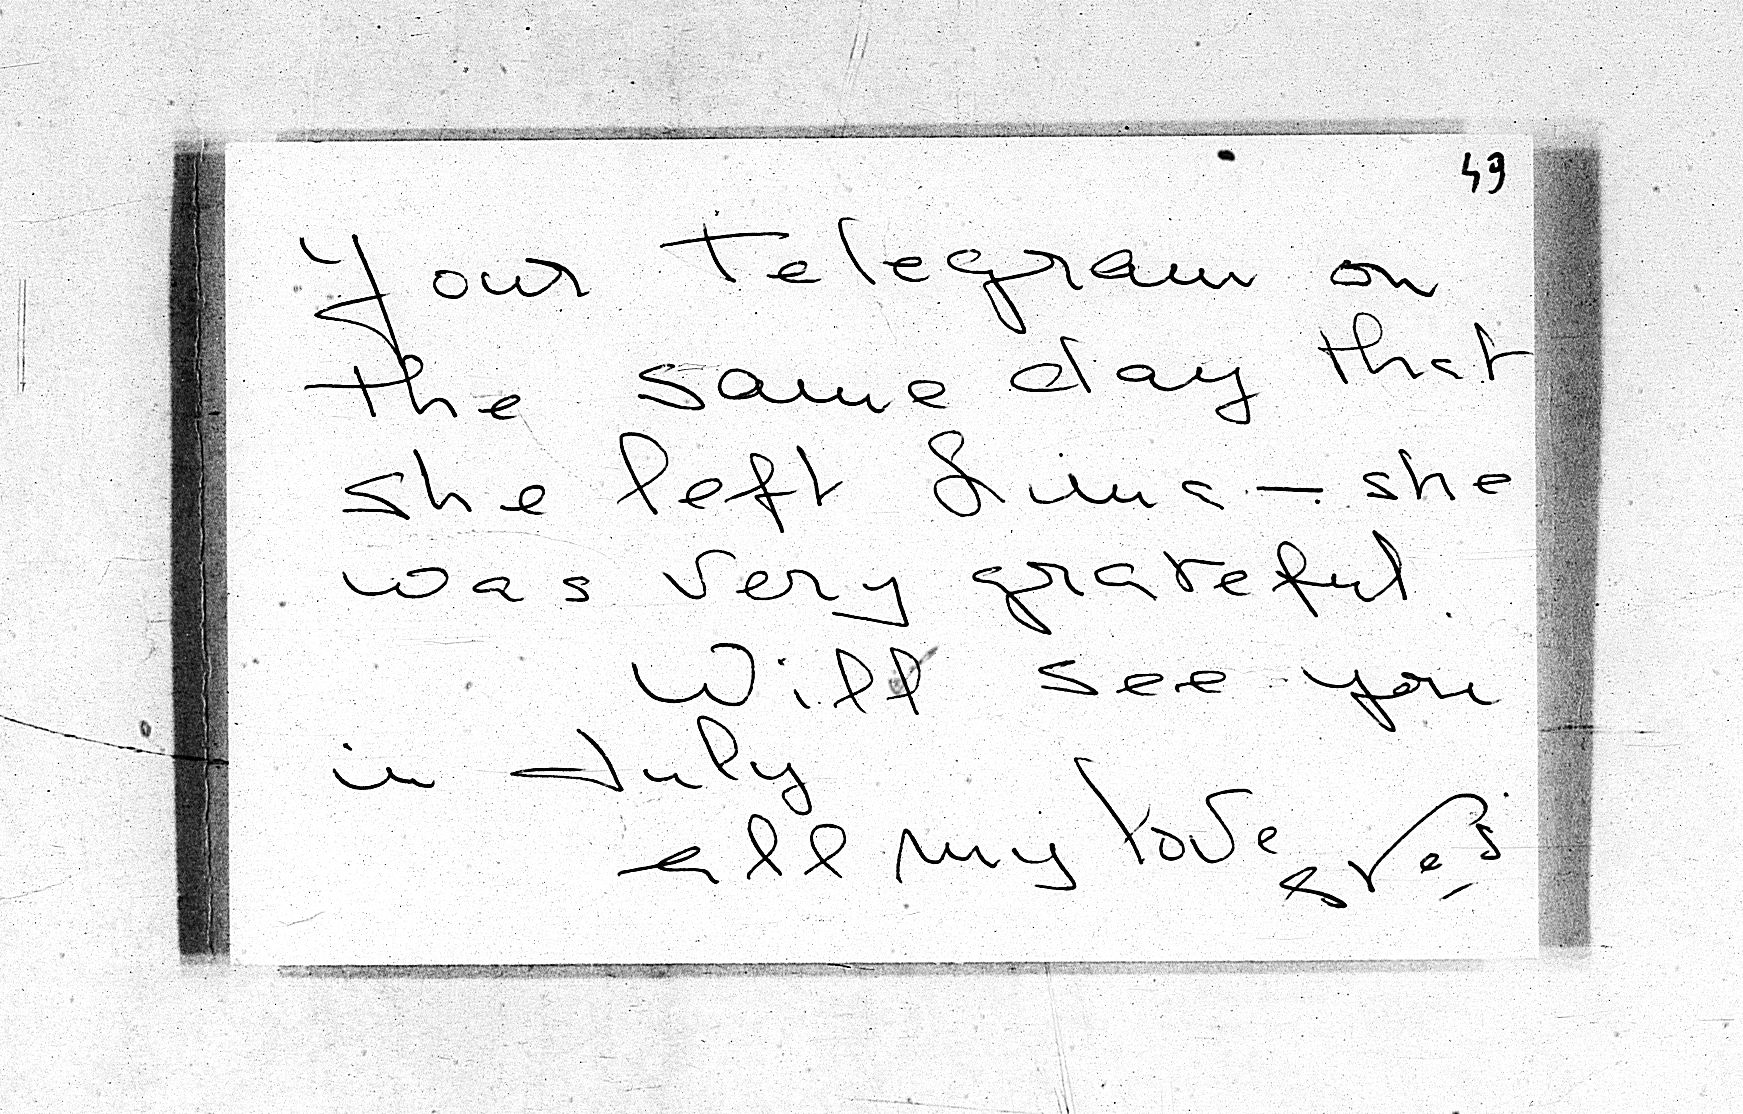 49
your telegram on
the same day that
she left Lima — she
was very grateful.
Will see you
in July
all my love